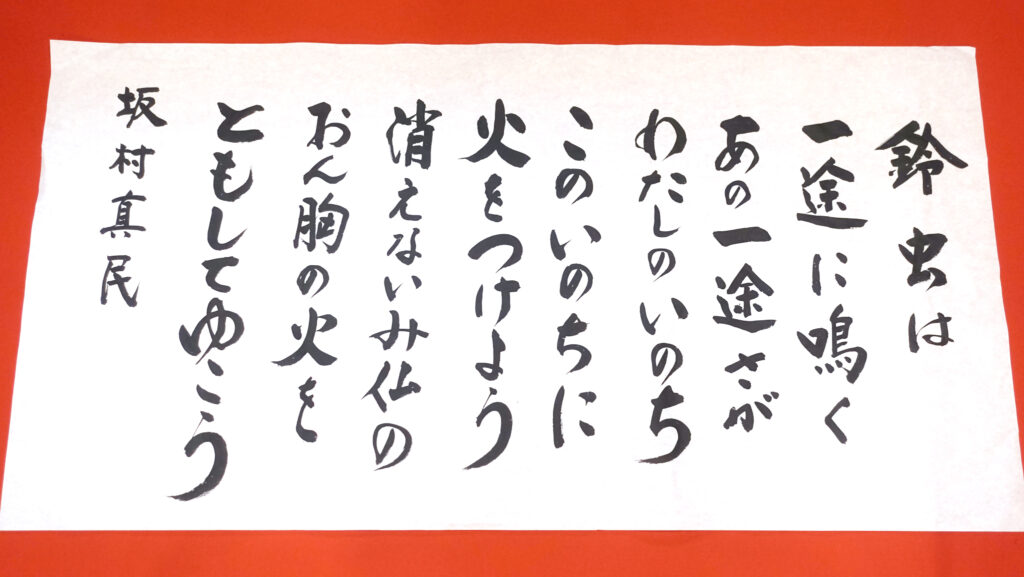 鈴虫は
一途に鳴く
あの一途さが
わたしのいのち
このいのちに
火をつけよう
消えないみ仏の
おん胸の火を
ともしてゆこう
坂村真民